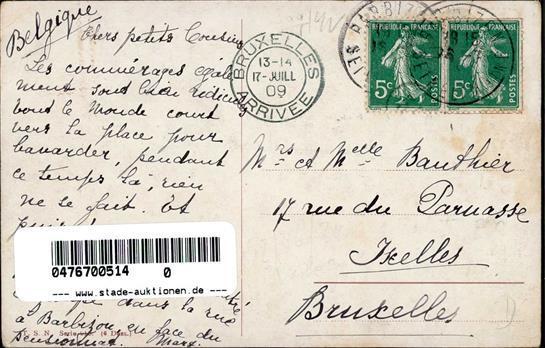 Belgique
Chers petits Cousins
Les commérages égale
ment sont bien ridicules
tout le monde court
vers la place pour
bavarder, pendant
ce temps là, rien
ne se fait. Et
puis
dans la rue
à Barbizon en face du
T. S. N. Serie (6 Dess.)
0476700514 0
--- www.stade-auktionen.de ---
BRUXELLES
13-14
17-JUILL
09
ARRIVÉE
BARBIZON
RÉPUBLIQUE FRANÇAISE
5c POSTES
RÉPUBLIQUE FRANÇAISE
5c POSTES
Mrs et Melle Bauthier
17 rue du Parnasse
Ixelles
Bruxelles